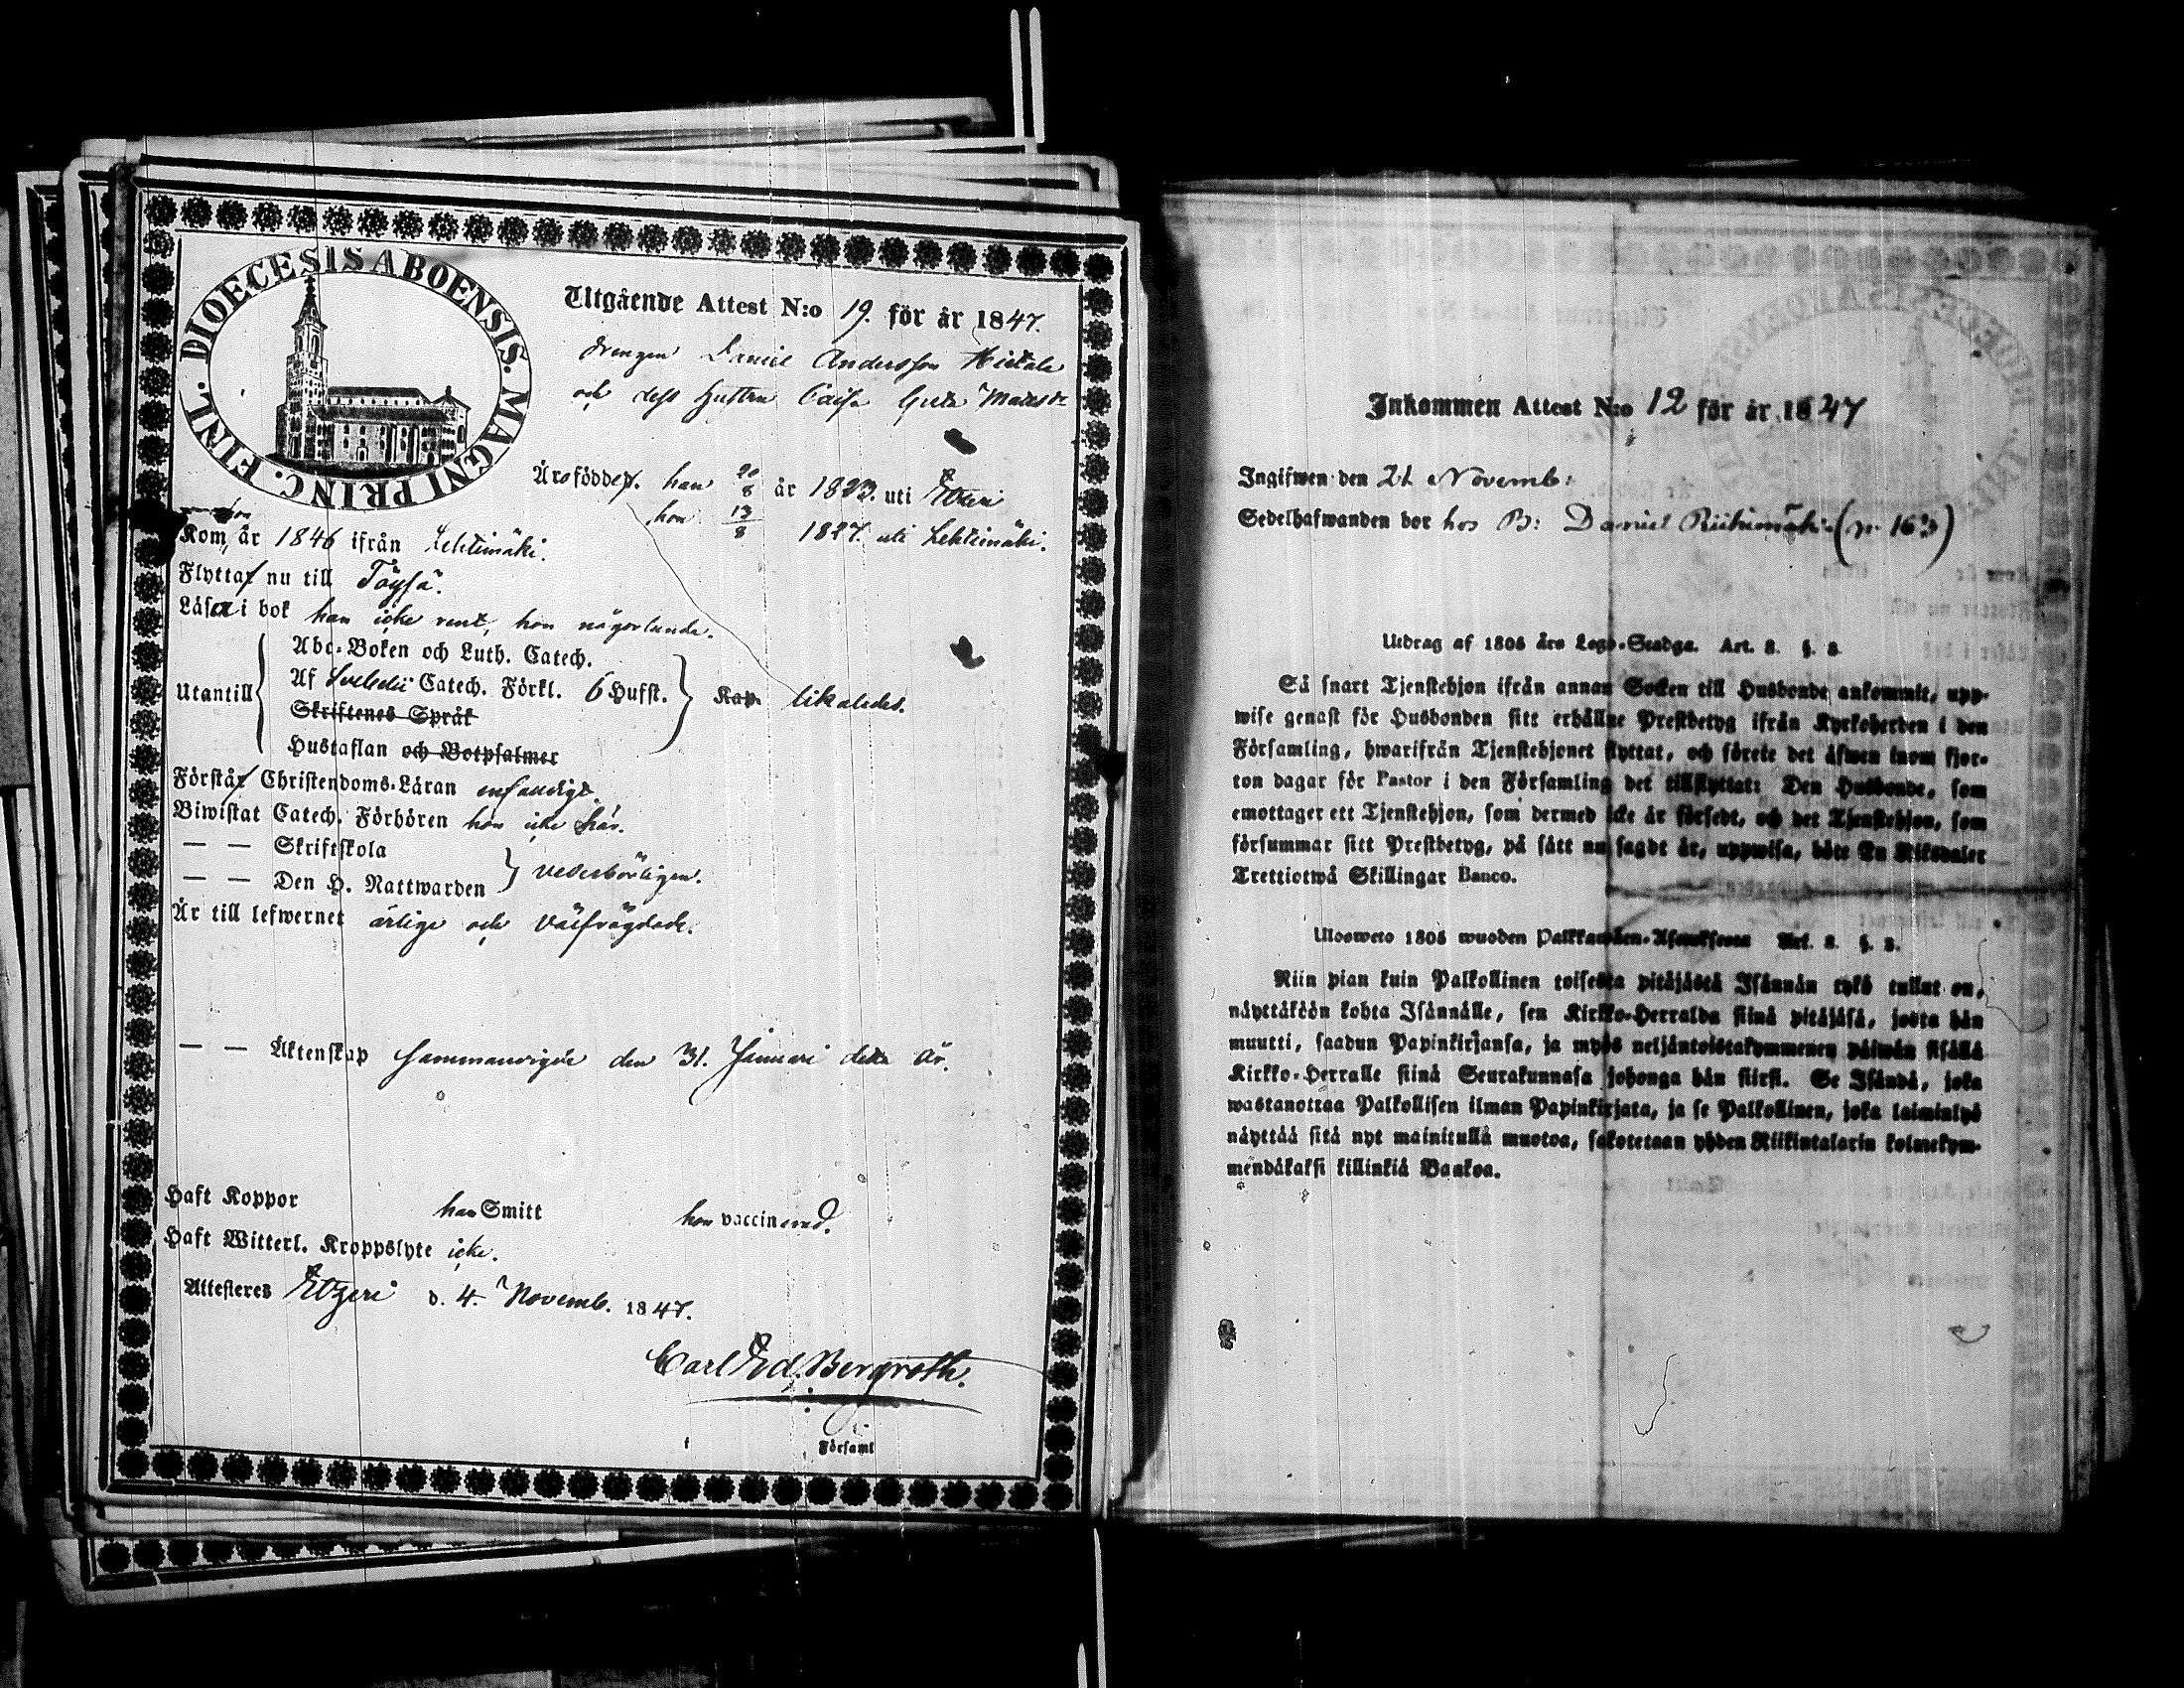 DIOECESIS ABOENSIS. MAGNI PRINC. FINL.
Utgående Attest N:o 19. för år 1847.
drengen Daniel Andersson Hietala
och dess hustru Caisa Greta Matsdr
Äro födde, han 20/8 år 1823. uti Etzeri
hon 13/8 1827. uti Lehtimäki.
hon
Kom år 1846 ifrån Lehtimäki.
Flytta nu till Töysä.
Läsa i bok han icke rent, hon någorlunda.
Utantill
Abc-Boken och Luth. Catech.
Af Svebelii Catech. Förkl. 6 Hufst.
Skriftenes Språk
Hustaflan och Botpsalmer
Kap. likaledes.
Förstå Christendoms-Läran enfaldigt.
Biwistat Catech. Förhören hon icke här.
— — Skriftskola
— — Den H. Nattwarden
vederbörligen.
Är till lefwernet ärliga och välfrägdade.
— — Äktenskap sammanvigde den 31. Januari detta år.
Haft Koppor han Smitt hon vaccinerad.
Haft Witterl. Kroppslyte icke.
Attesteras Etzeri d. 4. Novemb. 1847.
Carl Ed. Bergroth.
Församl
Inkommen Attest N:o 12 för år 1847
Ingifwen den 21 Novemb:
Sedelhafwanden bor hos B: Daniel Riihimäki (p. 163)
Utdrag af 1805 års Lego-Stadga. Art. 8. §. 8
Så snart Tjenstehjon ifrån annan Socken till Husbonde ankommit, upp-
wise genast för Husbonden sitt erhållne Prestbetyg ifrån Kyrkoherden i den
Församling, hwarifrån Tjenstehjonet flyttat, och förete det äfwen inom fjor-
ton dagar för Pastor i den Församling det tillflyttat: Den Husbonde, som
emottager ett Tjenstehjon, som dermed icke är försedt, och det Tjenstehjon, som
försummar sitt Prestbetyg, på sätt nu sagdt är, uppwisa, böte En Riksdaler
Trettiotwå Skillingar Banco.
Ulosweto 1805 wuoden Palkkawäen-Asetuksesta Art. 8. §. 8.
Niin pian kuin Palkollinen toisesta pitäjästä Isännän tykö tullut on,
näyttäköön kohta Isännälle, sen Kirkko-Herralda siinä pitäjäsä, josta hän
muutti, saadun Papinkirjansa, ja myös neljäntoistakymmenen päiwän sisällä
Kirkko-Herralle siinä Seurakunnasa johonga hän siirsi. Se Isändä, joka
wastanottaa Palkollisen ilman Papinkirjata, ja se Palkollinen, joka laiminlyö
näyttää sitä nyt mainitulla muotoa, sakotetaan yhden Riikintalarin kolmekym-
mendäkaksi killinkiä Bankoa.